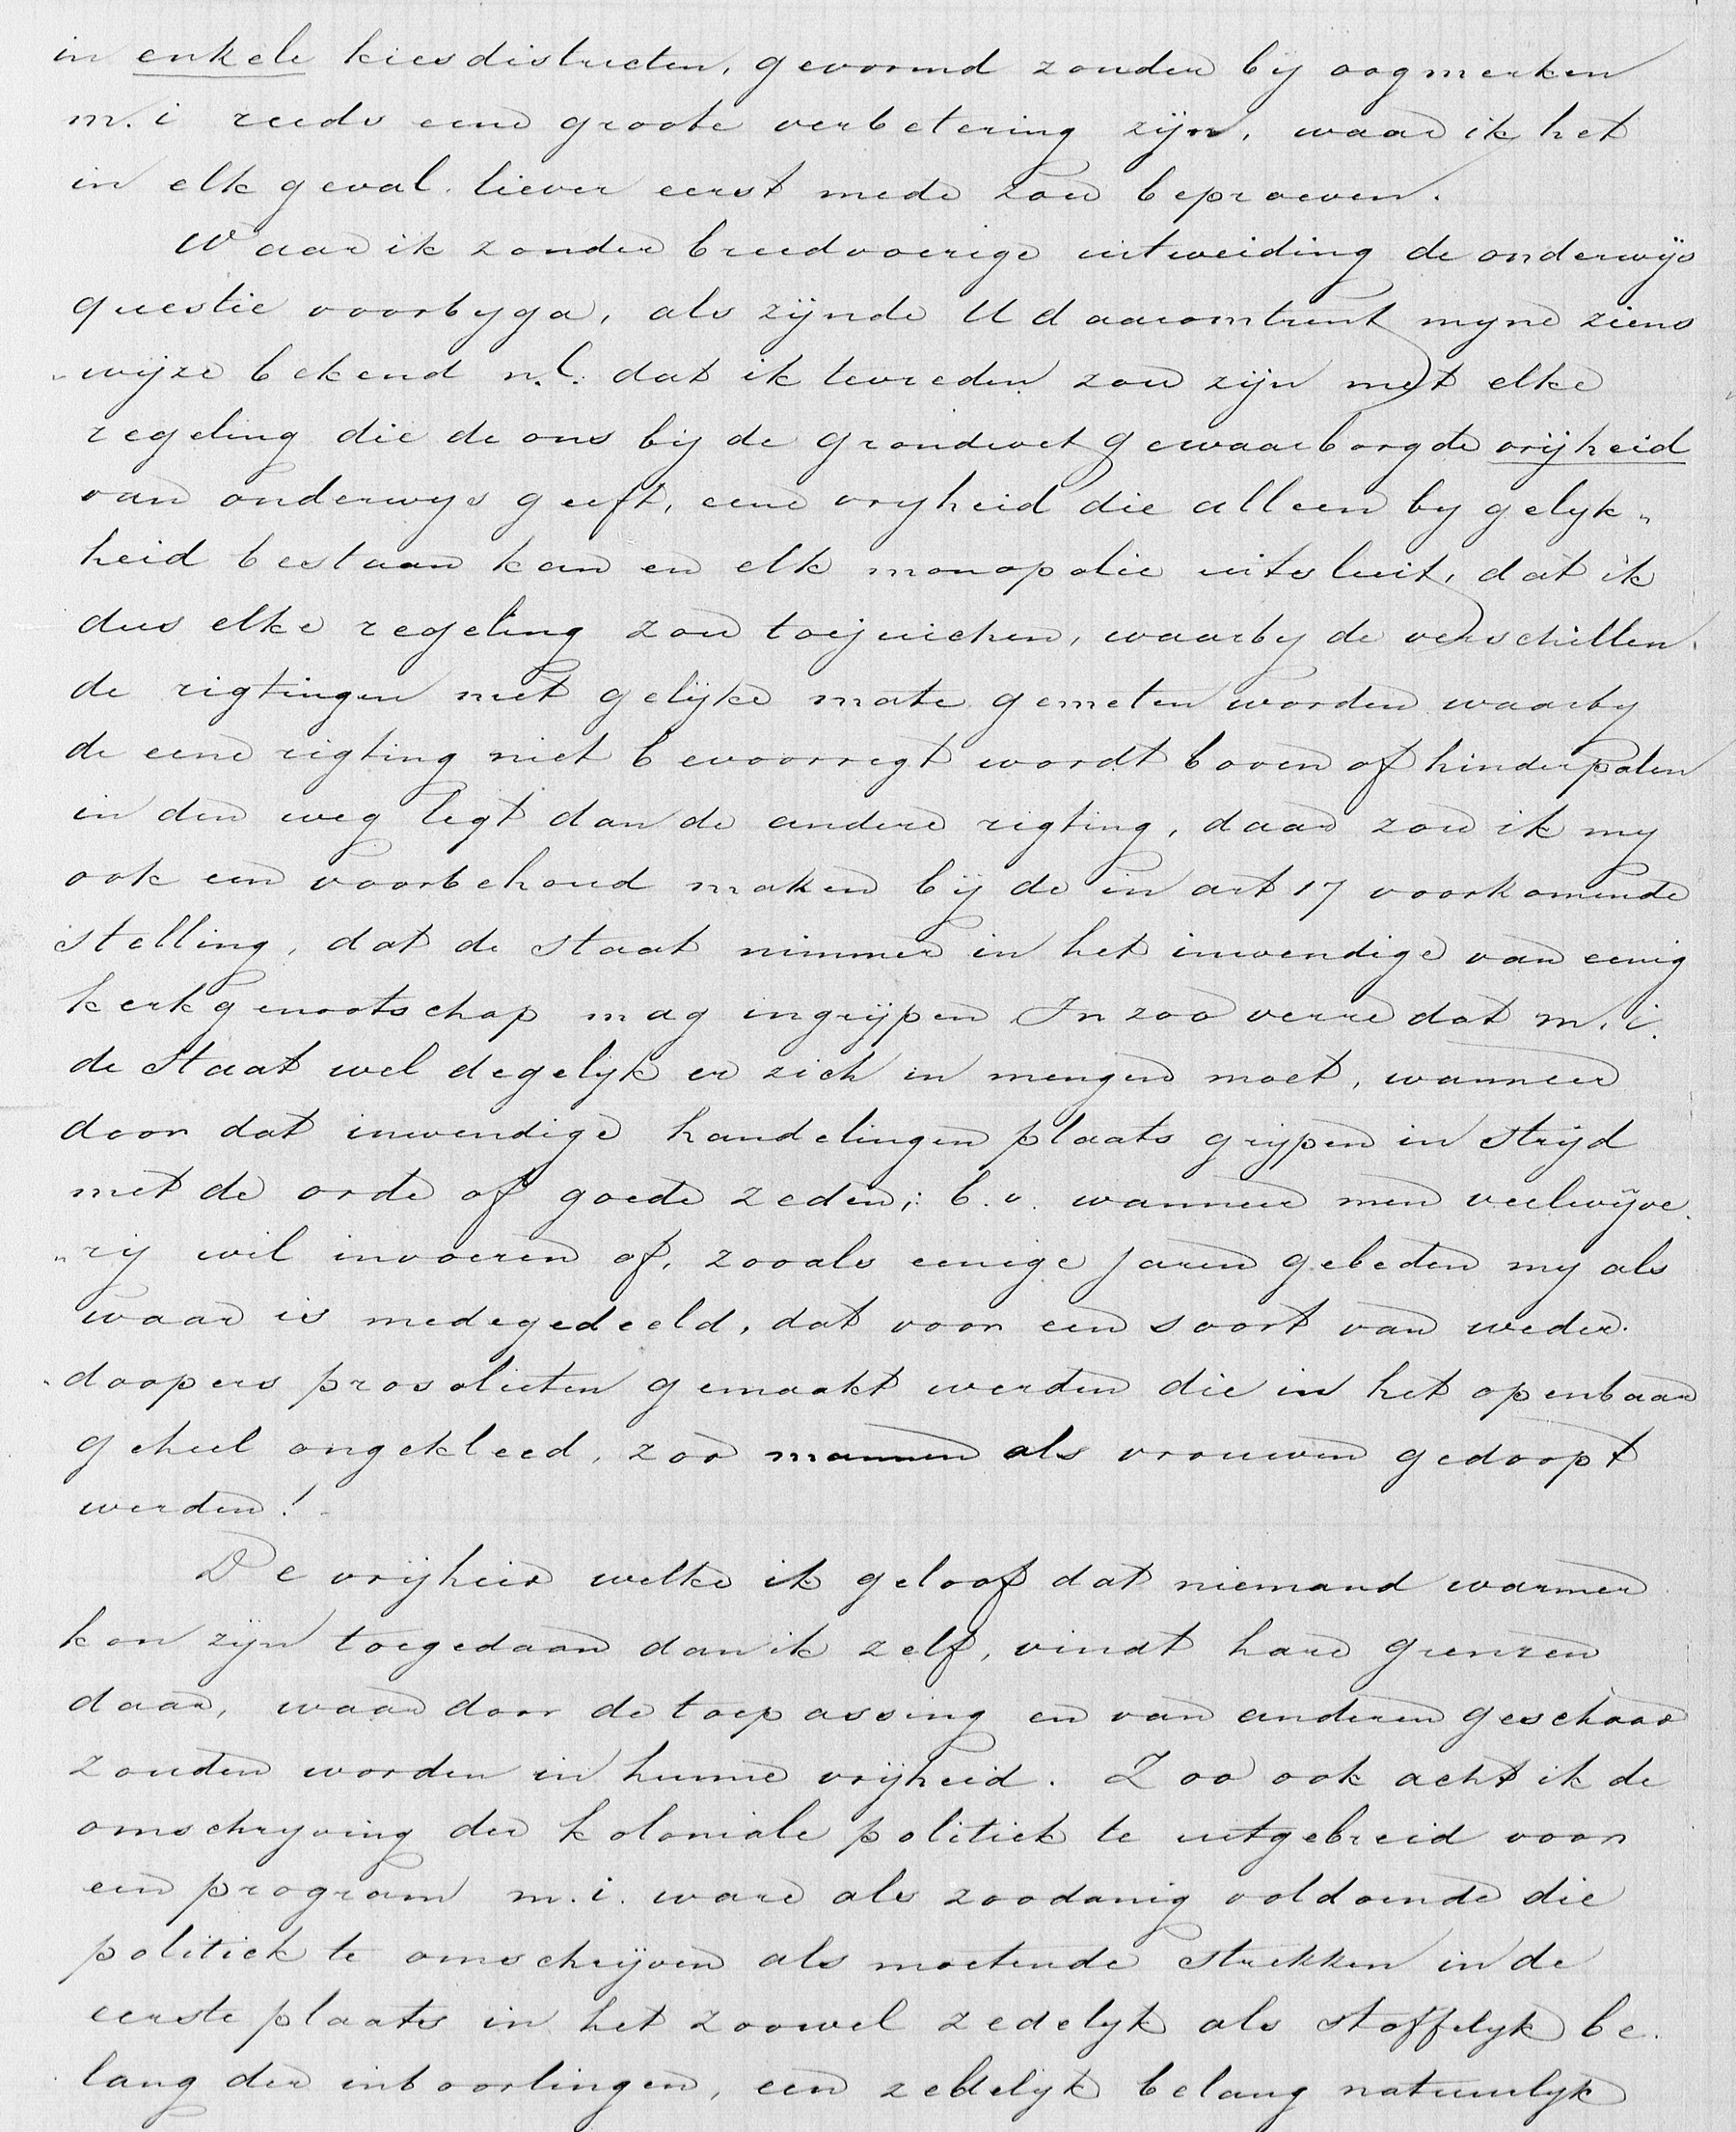 in enkele kiesdistricten, gevormd zonder by oogmerken
m. i reeds eene groote verbetering zijn, waar ik het
in elk geval liever eerst mede zou beproeven.
Waar ik zonder breedvoerige uitweiding de onderwijs
questie voorbyga, als zijnde U daaromtrent myne ziens
"wijze bekend n.l. dat ik tevreden zou zijn met elke
regeling die de ons bij de grondwet gewaarborgde vrijheid
van onderwys geeft, eene vryheid die alleen by gelyk"
heid bestaan kan en elk monopolie uitsluit, dat ik
dus elke regeling zou toejuichen, waarby de verschillen
de rigtingen met gelijke mate gemeten worden waarby
de eene rigting niet bevoorregt wordt boven of hinderpalen
in den weg legt dan de andere rigting, daar zou ik my
ook een voorbehoud maken bij de in art 17 voorkomende
stelling, dat de staat nimmer in het inwendige van eenig
kerkgenootschap mag ingrijpen In zoo verre dat m. i.
de Staat wel degelyk er zich in mengen moet, wanneer
door dat inwendige handelingen plaats grypen in strijd
met de orde of goede zeden; b. v. wanneer men veelwijve
"rij wil invoeren of, zooals eenige jaren geleden my als
waar is medegedeeld, dat voor een soort van weder
"doopers prosolieten gemaakt werden die in het openbaar
geheel ongekleed, zoo mannen als vrouwen gedoopt
werden!
De vrijheid welke ik geloof dat niemand warmer
kan zijn toegedaan dan ik zelf, vindt hare grenzen
daar, waar door de toepassing er van anderen geschaad
zouden worden in hunne vrijheid. Zoo ook acht ik de
omschryving der koloniale politiek te uitgebreid voor
een program m. i. ware als zoodanig voldoende die
politiek te omschrijven als moetende strekken in de
eerste plaats in het zoowel zedelyk als stoffelyk be
lang der inboorlingen, een zedelyk belang natuurlyk